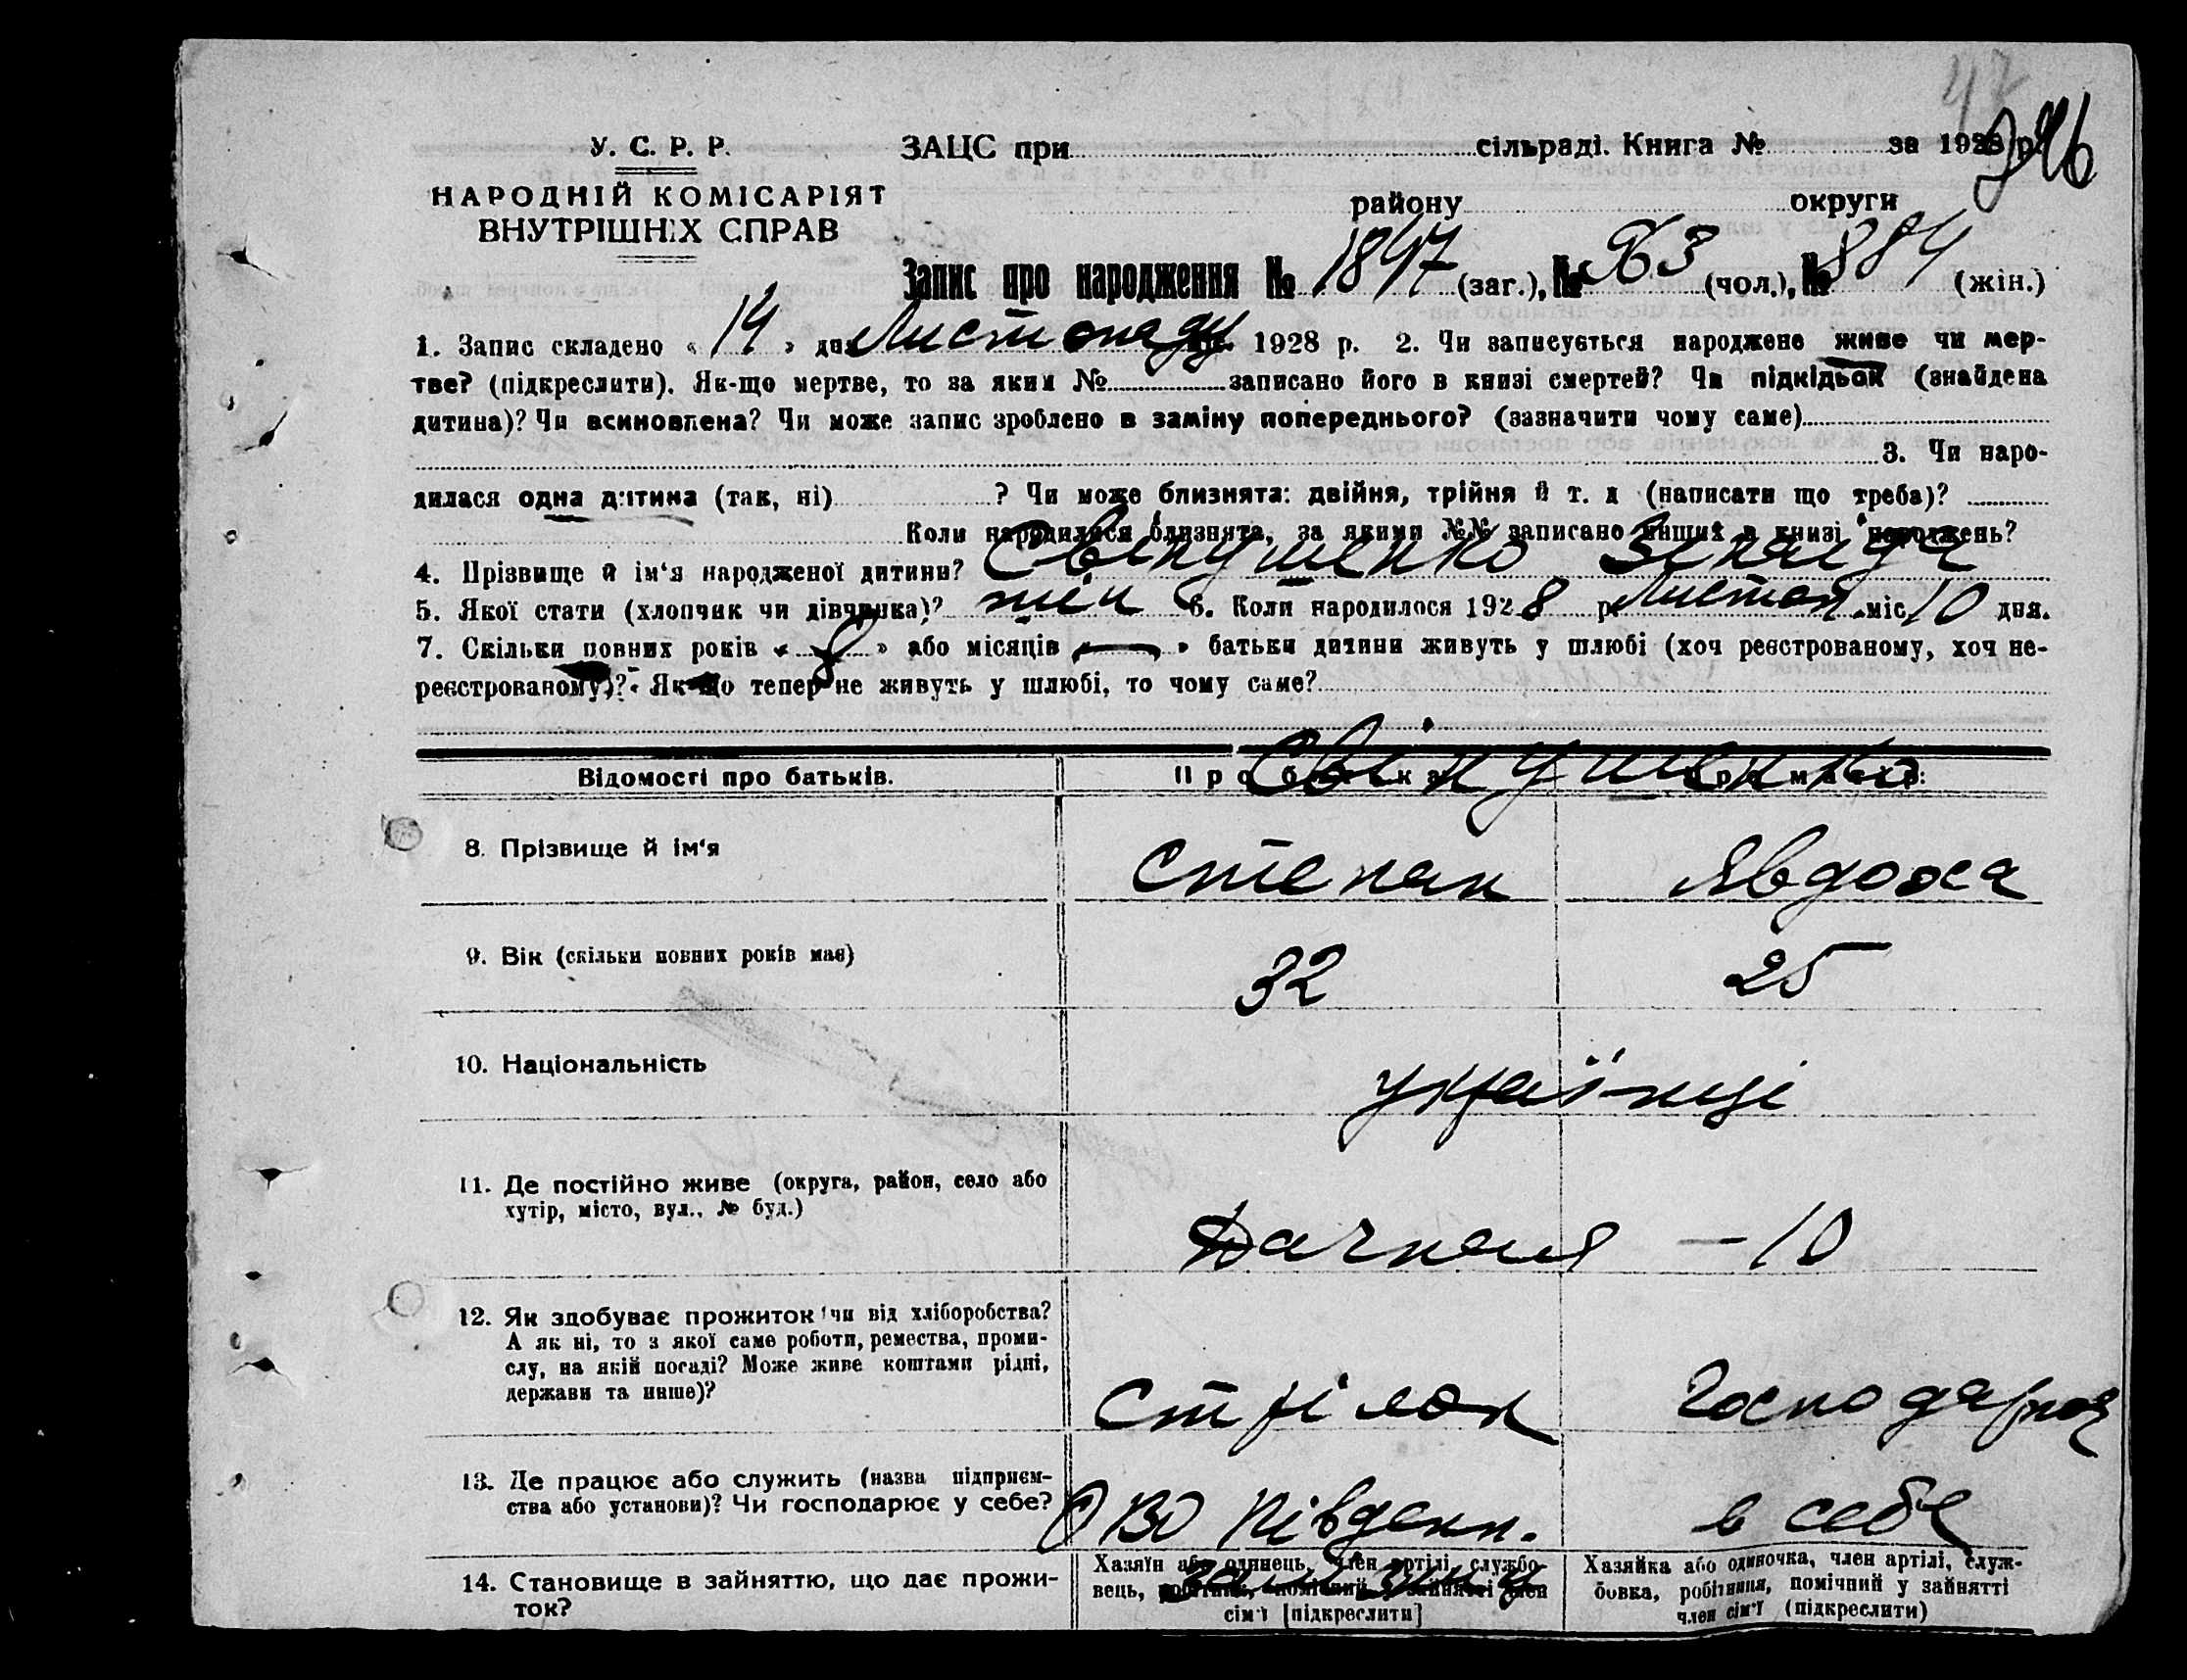 47
246
У. С. Р. Р.
ЗАЦС при сільраді. Книга № за 1928 р.
НАРОДНІЙ КОМІСАРІЯТ
ВНУТРІШНІХ СПРАВ
району округи
Запис про народження № 1847 (заг.), № 963 (чол.), № 884 (жін.)
1. Запис складено « 14 » дня Листопаду 1928 р. 2. Чи записується народжене живе чи мер-
тве? (підкреслити). Як-що мертве, то за яким № записано його в книзі смертей? Чи підкідьок (знайдена
дитина)? Чи всиновлена? Чи може запис зроблено в заміну попереднього? (зазначити чому саме)
3. Чи наро-
дилася одна дитина (так, ні) ? Чи може близнята: двійня, трійня й т. д (написати що треба)?
Коли народилися близнята, за якими №№ записано инших в книзі народжень?
4. Прізвище й ім'я народженої дитини? Свінушенко Зінаїда
5. Якої стати (хлопчик чи дівчинка)? жін 6. Коли народилося 1928 р. Листоп. міс. 10 дня.
7. Скільки повних років « 8 » або місяців « — » батьки дитини живуть у шлюбі (хоч реєстрованому, хоч не-
реєстрованому)? Як-що тепер не живуть у шлюбі, то чому саме?
Відомості про батьків. Про батька: Про матір:
Свінушенко
8. Прізвище й ім'я Степан Явдоха
9. Вік (скільки повних років має) 32 25
10. Національність українці
11. Де постійно живе (округа, район, село або
хутір, місто, вул., № буд.)
Дачная — 10
12. Як здобуває прожиток (чи від хліборобства?
А як ні, то з якої саме роботи, ремества, проми-
слу, на якій посаді? Може живе коштами рідні,
держави та инше)?
Стрілок Господарює
13. Де працює або служить (назва підприєм-
ства або установи)? Чи господарює у себе?
ОВО Південн. в себе
14. Становище в зайняттю, що дає прожи-
ток?
Хазяїн або одинець, член артілі, службо-
вець, робітник, помічний у зайнятті член
сім'ї [підкреслити]
Хазяйка або одиночка, член артілі, служ-
бовка, робітниця, помічний у зайнятті
член сім'ї (підкреслити)